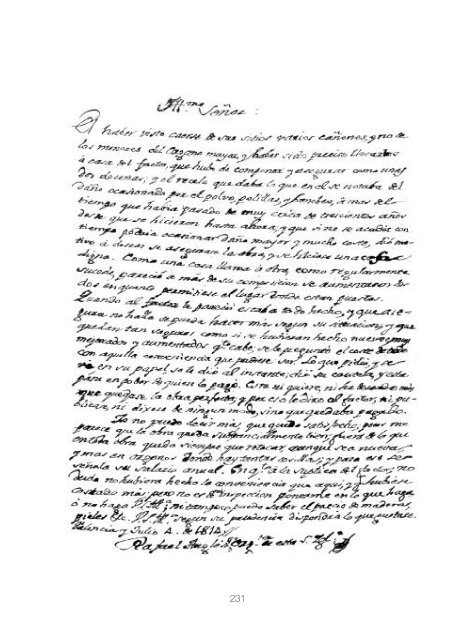 Ill.mo Señor:
El haber visto caerse de sus sitios varios cañones, y no de
los menores del organo mayor, y haber sido preciso llevarlos
á casa del factor, que hubo de componer y asegurar como unas
dos docenas; y el recelo que daba lo que en el se notaba del
daño ocasionado por el polvo, polillas, y hambre, á mas del
tiempo que habia pasado de muy cerca de trecientos años
desde que se hicieron hasta ahora; y que si no se acudia con
tiempo podria ocasionar daño mayor y mucho coste, dió mo-
tivo á desear se asegurase la obra, y se hiciese una cosa
digna. Como una cosa llama á otra, como regularmente
sucede, pareció á mas de su composicion se aumentasen
en quanto permitiese el lugar donde estan puestos.
Quando al factor le pareció estaba todo hecho, y que ase-
gura no halla se pueda hacer mas segun su situacion, y que
quedan tan seguros como si se hubieran hecho nuevos, muy
mejorados y aumentados q.e cabe; se le preguntó el coste
con aquella conveniencia que pudiese ser. Lo que pidió, y se
en su papel, se le dió al instante; dió su cautela, y está
para en poder de quien lo pagó. Este ni quiere, ni ha deseado mas
que quedase la obra perfecta; y por eso le dixo al factor, ni pu-
blicase, ni dixese de ningun modo, sino que quedaba pagado.
Yo no puedo decir mas que quedo satisfecho, pues me
parece que la obra queda substancialmente bien, fuera de lo que
en toda obra queda siempre que retocar, aunque sea nueva,
y mas en organos donde hay tantas cosillas; y para eso se
señala su salario anual. En q.to á la suplica del factor, no
duda no hubiera hecho la conveniencia que aqui, y hubiese
costado mas; pero no es de mi inspeccion ponerme en lo que haga
ó no haga V.S.Ill.ma ni tampoco puedo saber el precio de maderas,
pieles &c. V.S.Ill.ma segun su prudencia dispondrá lo que gustare.
Valencia y Julio 4. de 1814.
Rafael Anglés Org.ta de esta S.
231